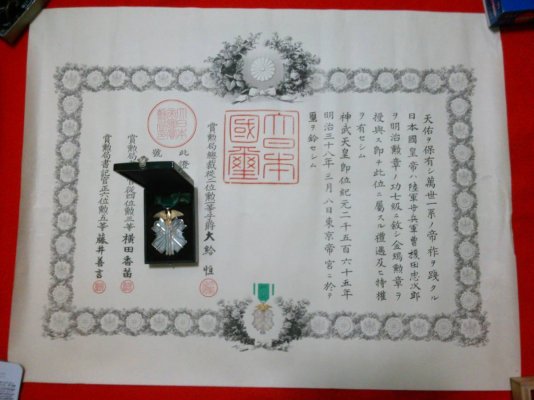 天佑ヲ保有シ萬世一系ノ帝祚ヲ踐タル
日本國皇帝ハ陸軍
ヲ明治勲章ノ功七級ニ敘シ金鵄勲章ヲ
授與ス即チ此位ニ屬スル禮遇及ヒ特權
ヲ有セシム
神武天皇即位紀元二千五百六十五年
明治三十八年三月八日東京帝宮ニ於テ
璽ヲ鈐セシム
大日本
國璽
賞勲局總裁從二位勲一等子爵大給恒
此證
號
四位勲三等横田香苗
賞勲局書記官正六位勲五等藤井善言